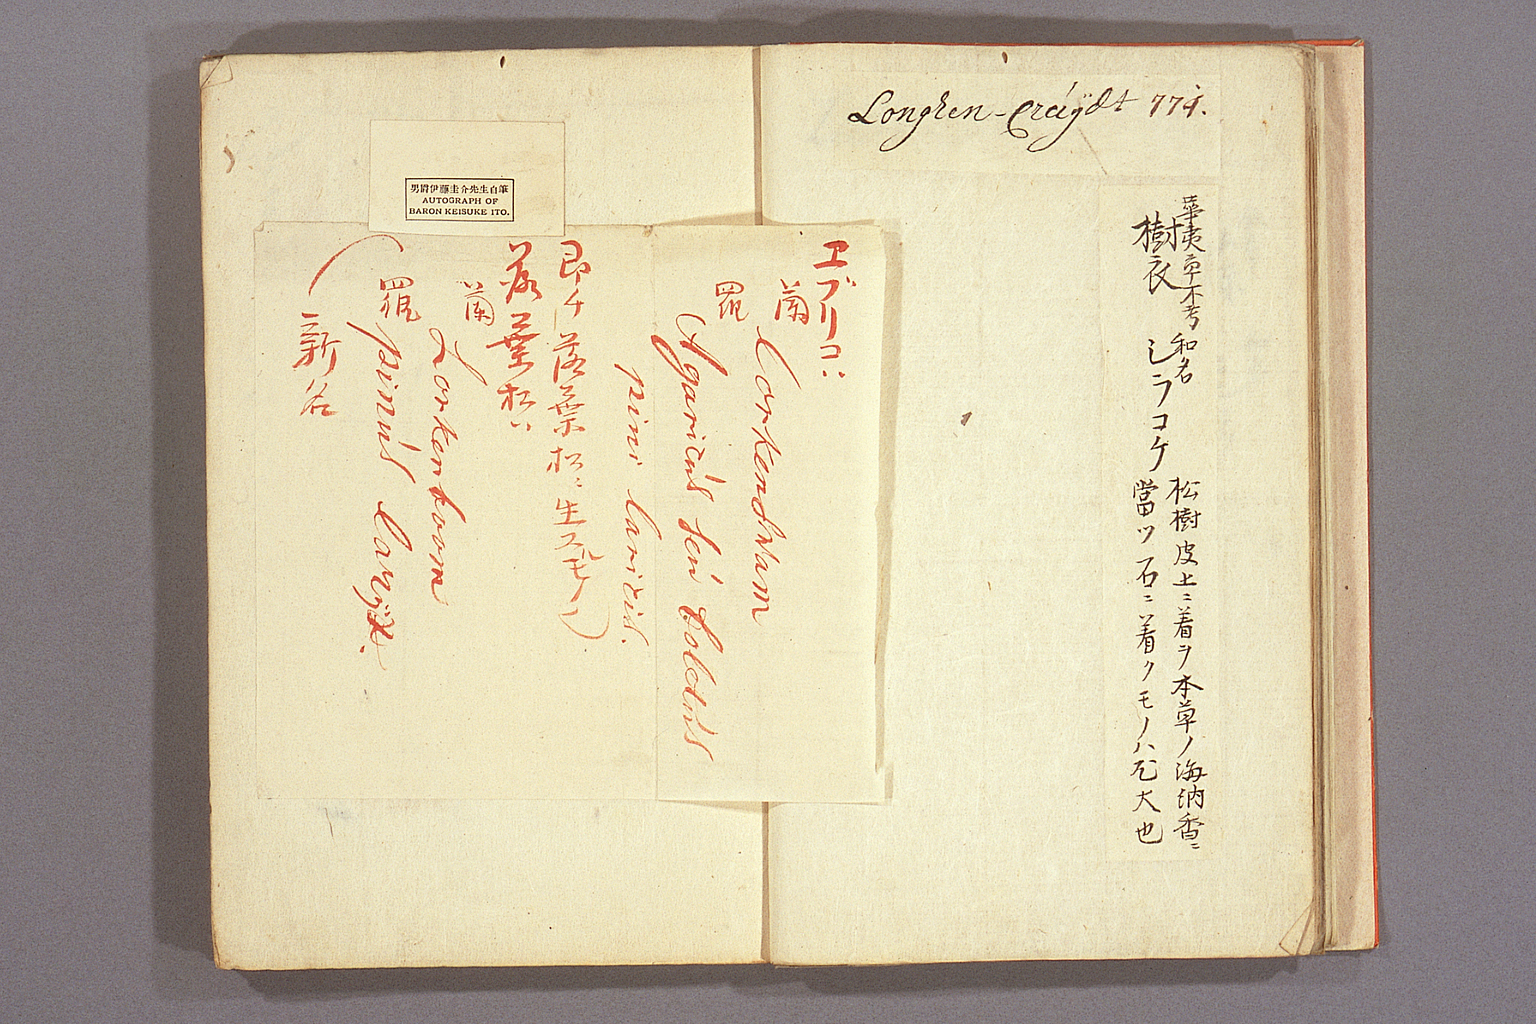 Longhen-Crúÿdt 774.
華夷草木考 和名
樹衣 シラコケ
松樹皮上ニ着ヲ本草ノ海納香ニ
當ツ石ニ着クモノハ尤大也
男爵伊藤圭介先生自筆
AUTOGRAPH OF
BARON KEISUKE ITO.
エブリコハ
蘭 Lorkenswam
羅 Agaricus seú boletus
pini laricis.
即チ落葉松ニ生スルモノ
落葉松ハ
蘭 Lorkenboom
羅 pinus larix.
新名